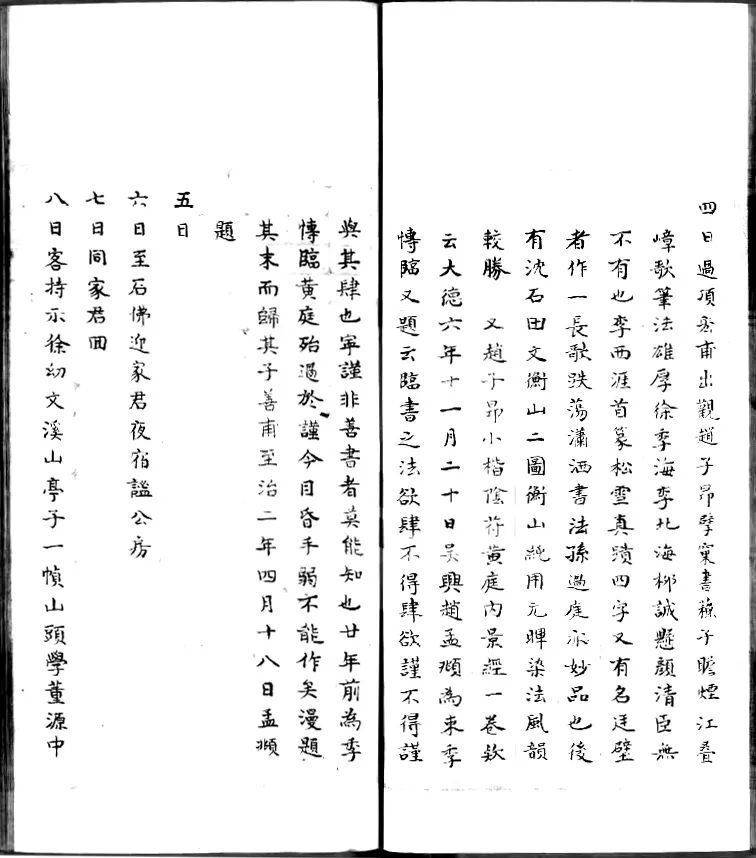 四日過項於甫出觀趙子昂擘窠書蘓子瞻煙江疊
嶂歌筆法雄厚徐季海李北海柳誠懸顏清臣無
不有也李西涯首篆松雪真蹟四字又有名廷璧
者作一長歌跌蕩瀟洒書法孫過庭亦妙品也後
有沈石田文衡山二圖衡山純用元暉染法風韻
較勝　又趙子昂小楷陰符黄庭内景經一卷欵
云大德六年十一月二十日吴興趙孟頫為束季
愽臨又題云臨書之法欲肆不得肆欲謹不得謹
與其肆也寧謹非善書者莫能知也廿年前為季
愽臨黄庭殆過於謹今目昏手弱不能作矣漫題
其末而歸其子善甫至治二年四月十八日孟頫
題
五日
六日至石佛迎家君夜宿謐公房
七日同家君囬
八日客持示徐幼文溪山亭子一幀山頭學董源中